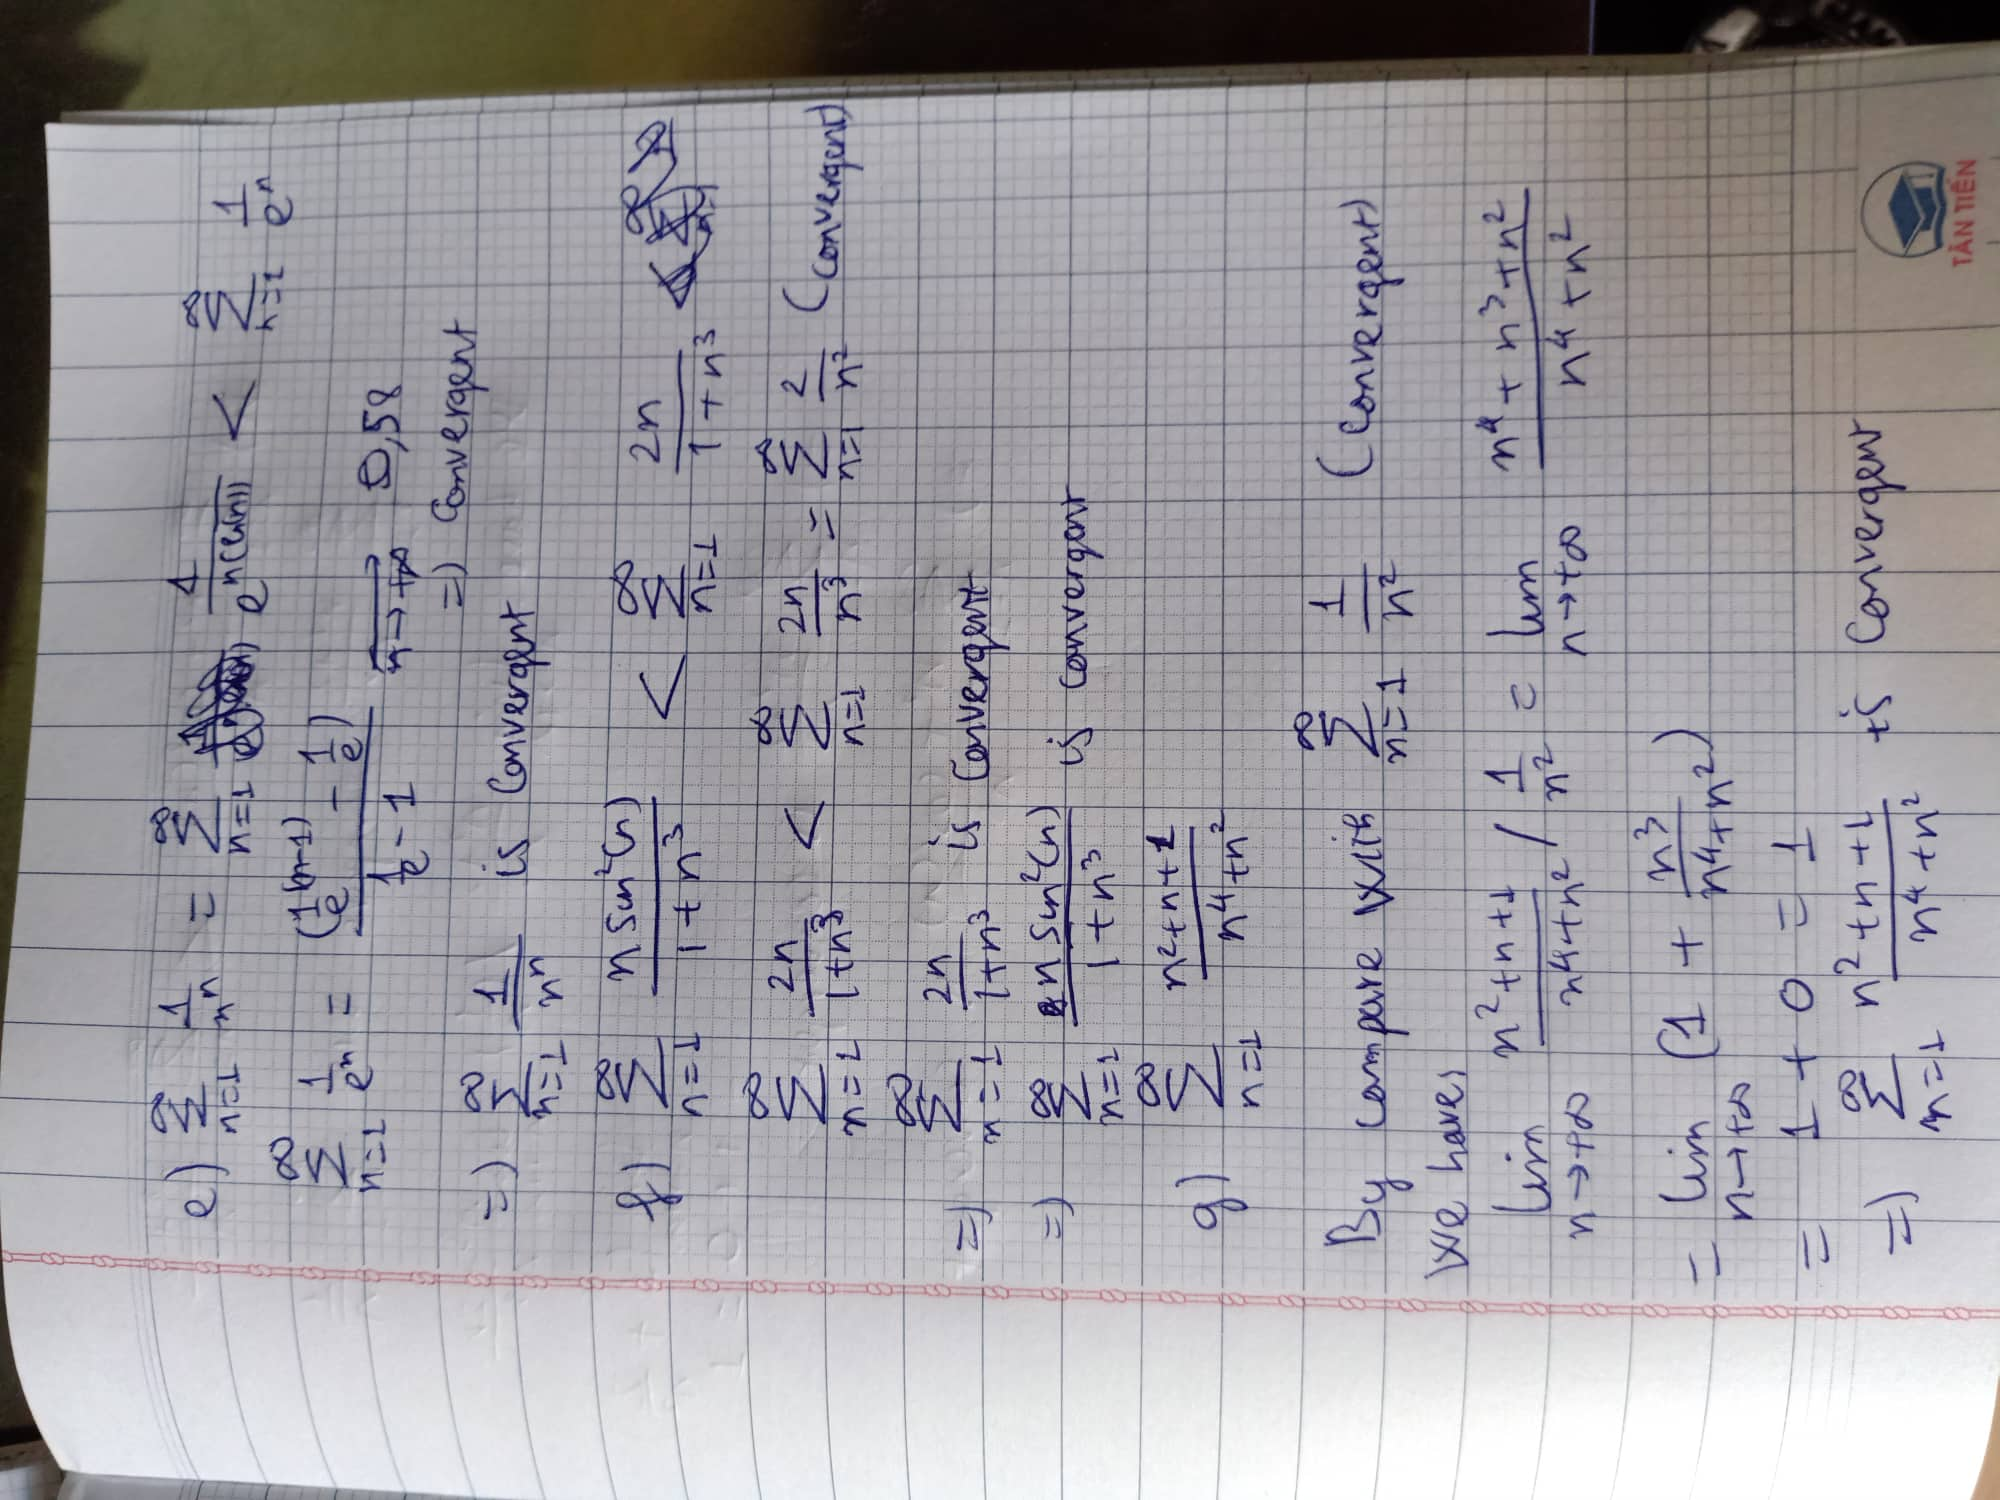 e) ∑_{n=1}^{∞} 1/n^n = ∑_{n=1}^{∞} 1/e^{n(ln(n))} < ∑_{n=1}^{∞} 1/e^n
∑_{n=1}^{∞} 1/e^n = ((1/e)^{(n-1)} - 1/e)/(1/e - 1) →_{n→+∞} 0,58
=) Convergent
=) ∑_{n=1}^{∞} 1/n^n is Convergent
f) ∑_{n=1}^{∞} n sin²(n)/(1+n³) < ∑_{n=1}^{∞} 2n/(1+n³)
∑_{n=1}^{∞} 2n/(1+n³) < ∑_{n=1}^{∞} 2n/n³ = ∑_{n=1}^{∞} 2/n² (Convergent)
=) ∑_{n=1}^{∞} 2n/(1+n³) is Convergent
=) ∑_{n=1}^{∞} n sin²(n)/(1+n³) is convergent
g) ∑_{n=1}^{∞} (n²+n+1)/(n⁴+n²)
By compare with ∑_{n=1}^{∞} 1/n² (Convergent)
We have,
lim_{n→+∞} (n²+n+1)/(n⁴+n²) / 1/n² = lim_{n→+∞} (n⁴+n³+n²)/(n⁴+n²)
= lim_{n→+∞} (1 + n³/(n⁴+n²))
= 1 + 0 = 1
=) ∑_{n=1}^{∞} (n²+n+1)/(n⁴+n²) is Convergent
TÂN TIẾN